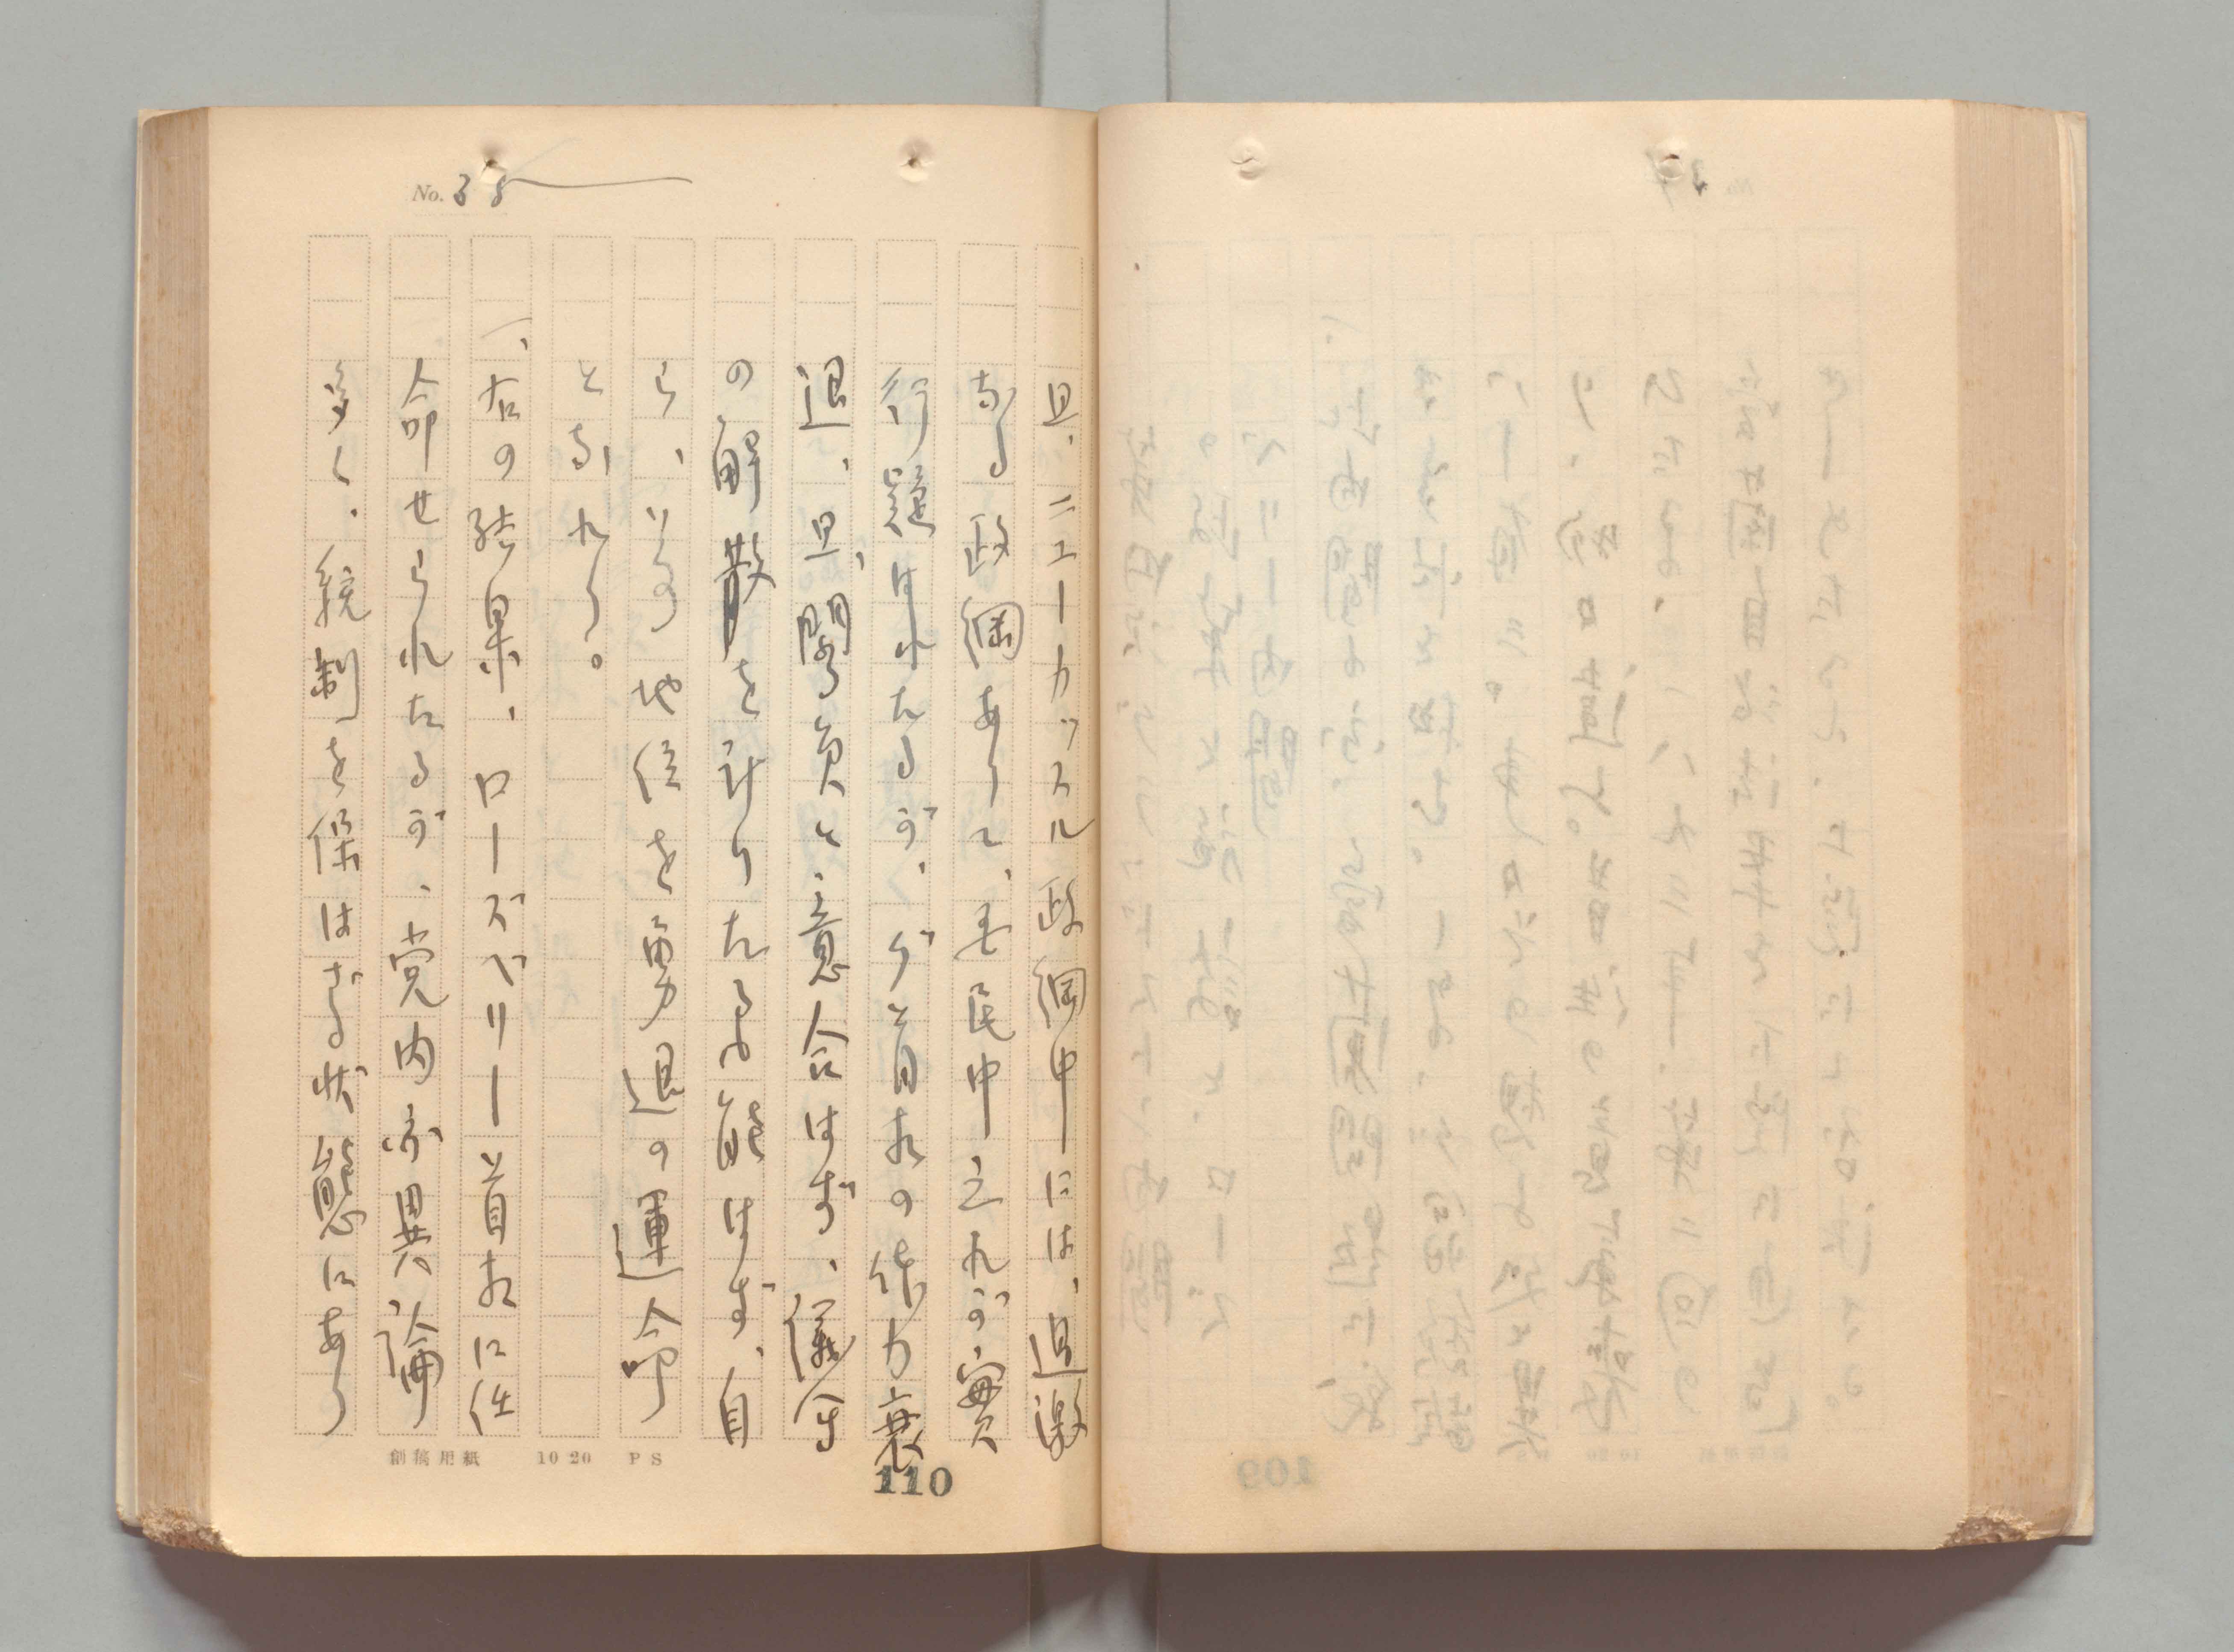 No. 38
且、ニューカッスル政綱中には、過激
なる政綱ありて、王民中之れが實
行疑はれたるが、グ首相の体力衰
退、且、閣員と意合はず、議会
の解散を計りたるも能はず、自
ら、その地位を勇退の運命
となれり。
一、右の結果、ローズベリー首相に任
命せられたるが、党内亦異論
多く、統制を保はざる状態にあり
創稿用紙 10 20 PS
110